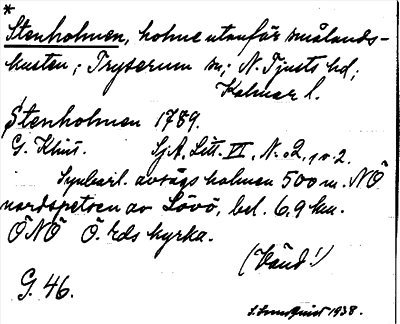 *
Stenholmen, holme utanför Smålands-
kusten; Tryserum sn; N. Tjusts hd;
Kalmar l.
Stenholmen 1789.
G. Klint. SjA, Litt. VI, N:o 2, p. 2.
Synbarl. avsågs holmen 500 m. NÖ
nordspetsen av Lövö, bel. 6,9 km.
ÖNÖ Ö. Eds kyrka.
(Vänd!)
G. 46.
S. Lundquist 1938.